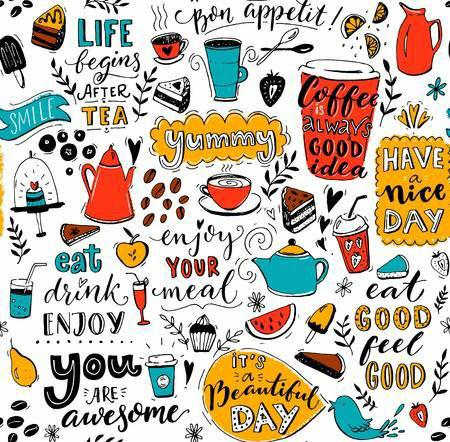 bon appetit!
LIFE
begins
AFTER
TEA
SMILE
Coffee
is
always
GOOD
idea
yummy
HAVE
a
nice
DAY
enjoy
YOUR
meal
eat
drink
ENJOY
eat
GOOD
feel
GOOD
you
ARE
awesome
IT'S
a
Beautiful
DAY